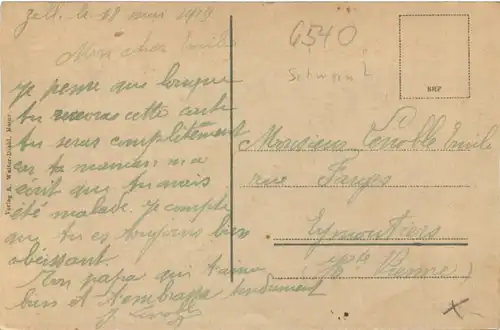 Zell. le 18 mai 1919
Mon cher Emile
Je pense qui lorsque
tu recevras cette carte
tu seras complétement
ta maman m'a
écrit que tu avais
été malade. Je compte
que tu es toujours bien
obéissant
Ton papa qui t'aime
bien et t'embrasse tendrement
6540
SHF
Monsieur Lenoble Emile
rue Farges
Eymoutiers
(Hte Vienne)
Verlag A. Walter-Diehl, Mayen